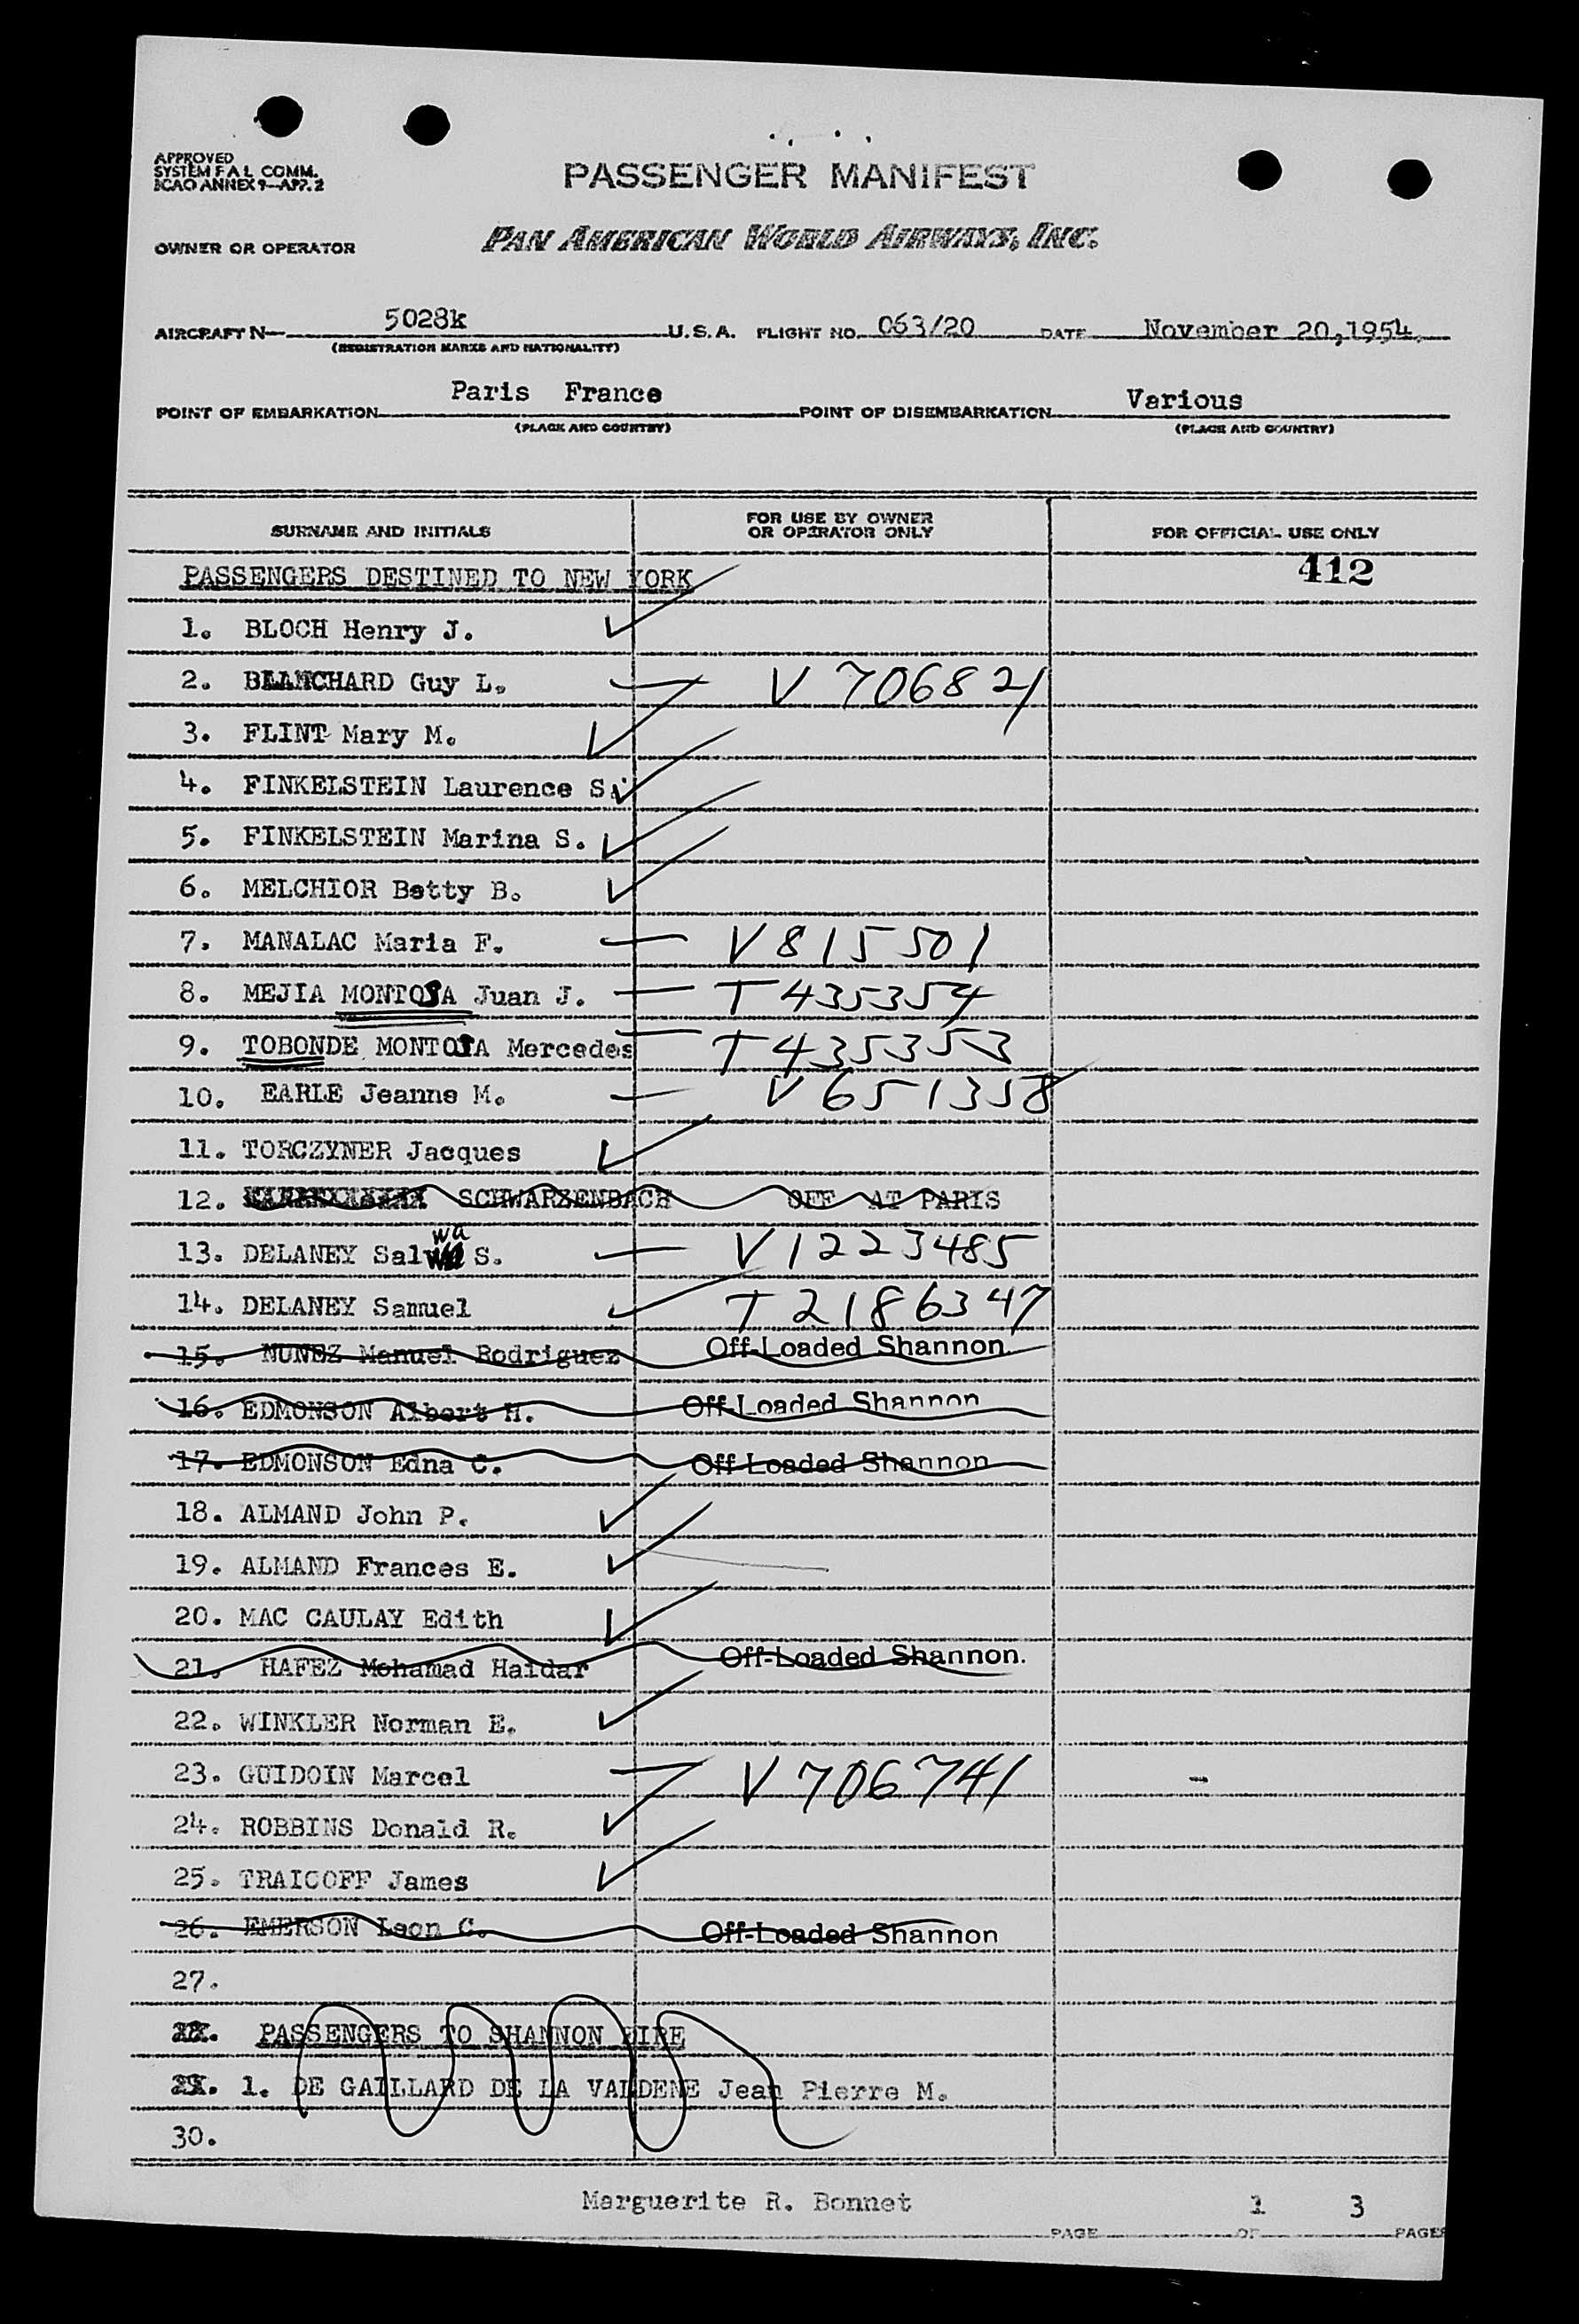 APPROVED
SYSTEM F A L COMM.
ICAO ANNEX 9-APP. 2
PASSENGER MANIFEST
OWNER OR OPERATOR PAN AMERICAN WORLD AIRWAYS, INC.
AIRCRAFT N- 5028k U.S.A. FLIGHT NO. 063/20 DATE November 20,1954.
(REGISTRATION MARKS AND NATIONALITY)
POINT OF EMBARKATION Paris France POINT OF DISEMBARKATION Various
(PLACE AND COUNTRY) (PLACE AND COUNTRY)
SURNAME AND INITIALS FOR USE BY OWNER OR OPERATOR ONLY FOR OFFICIAL USE ONLY
PASSENGERS DESTINED TO NEW YORK 412
1. BLOCH Henry J.
2. BLANCHARD Guy L. V 706821
3. FLINT Mary M.
4. FINKELSTEIN Laurence S.
5. FINKELSTEIN Marina S.
6. MELCHIOR Betty B.
7. MANALAC Maria F. V 815501
8. MEJIA MONTOYA Juan J. T 435354
9. TOBONDE MONTOYA Mercedes T 435353
10. EARLE Jeanne M. V 651358
11. TORCZYNER Jacques
12. SCHWARZENBACH OFF AT PARIS
13. DELANEY Salwa S. V 1223485
14. DELANEY Samuel T 2186347
15. NUNEZ Manuel Rodriguez Off-Loaded Shannon.
16. EDMONSON Albert H. Off-Loaded Shannon
17. EDMONSON Edna C. Off-Loaded Shannon
18. ALMAND John P.
19. ALMAND Frances E.
20. MAC CAULAY Edith
21. HAFEZ Mohamad Haidar Off-Loaded Shannon.
22. WINKLER Norman E.
23. GUIDOIN Marcel V 706741
24. ROBBINS Donald R.
25. TRAICOFF James
26. EMERSON Leon C. Off-Loaded Shannon
27.
28. PASSENGERS TO SHANNON EIRE
29. 1. DE GAILLARD DE LA VALDENE Jean Pierre M.
30.
Marguerite R. Bonnet
PAGE 1 OF 3 PAGES